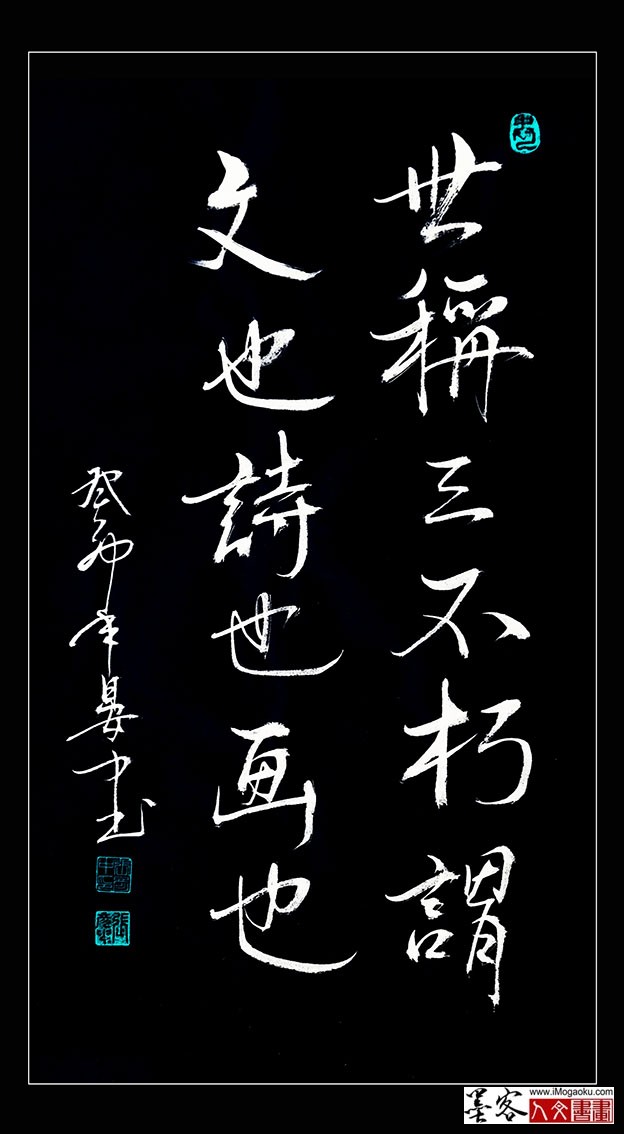 世稱三不朽謂
文也詩也画也
癸卯年晏中书
墨客
www.iMogaoku.com
人文書畫